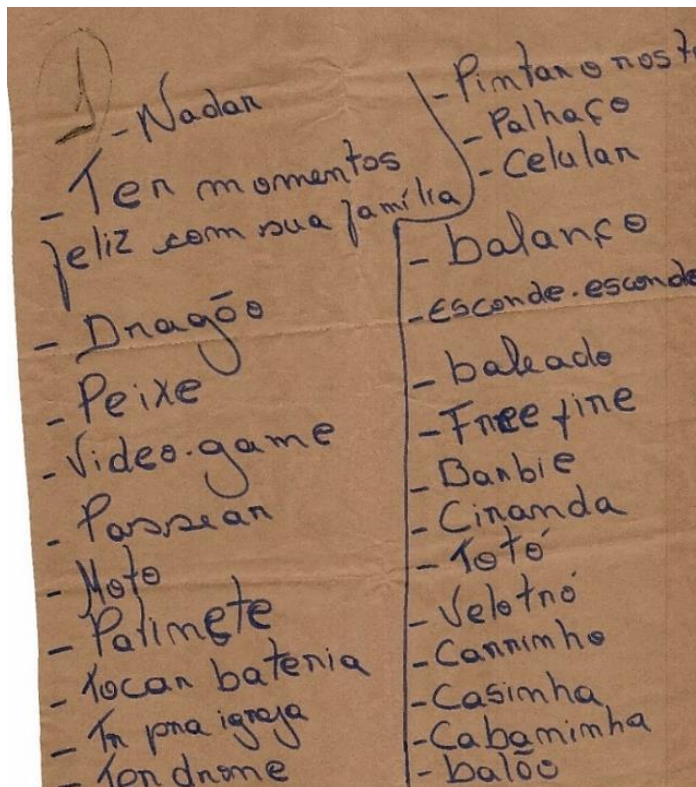 1
- Nadar
- Ter momentos
feliz com sua família
- Dragão
- Peixe
- Video-game
- Passear
- Moto
- Patinete
- Tocar bateria
- Ir pra igreja
- Ter drone
- Pintar o rosto
- Palhaço
- Celular
- balanço
- Esconde-esconde
- baleado
- Free fire
- Barbie
- Ciranda
- Totó
- Velotró
- Carrinho
- Casinha
- Cabaninha
- balão